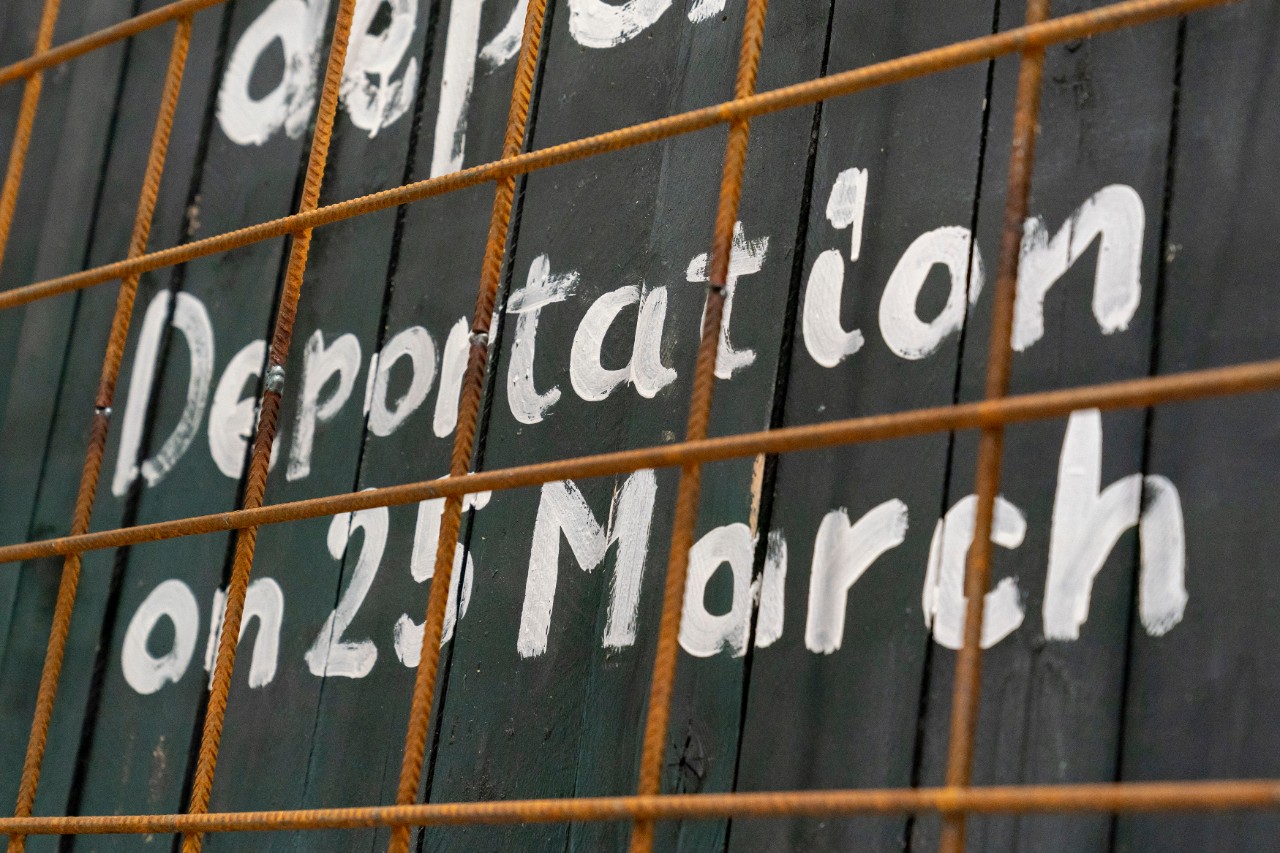 Deportation
on 25 March